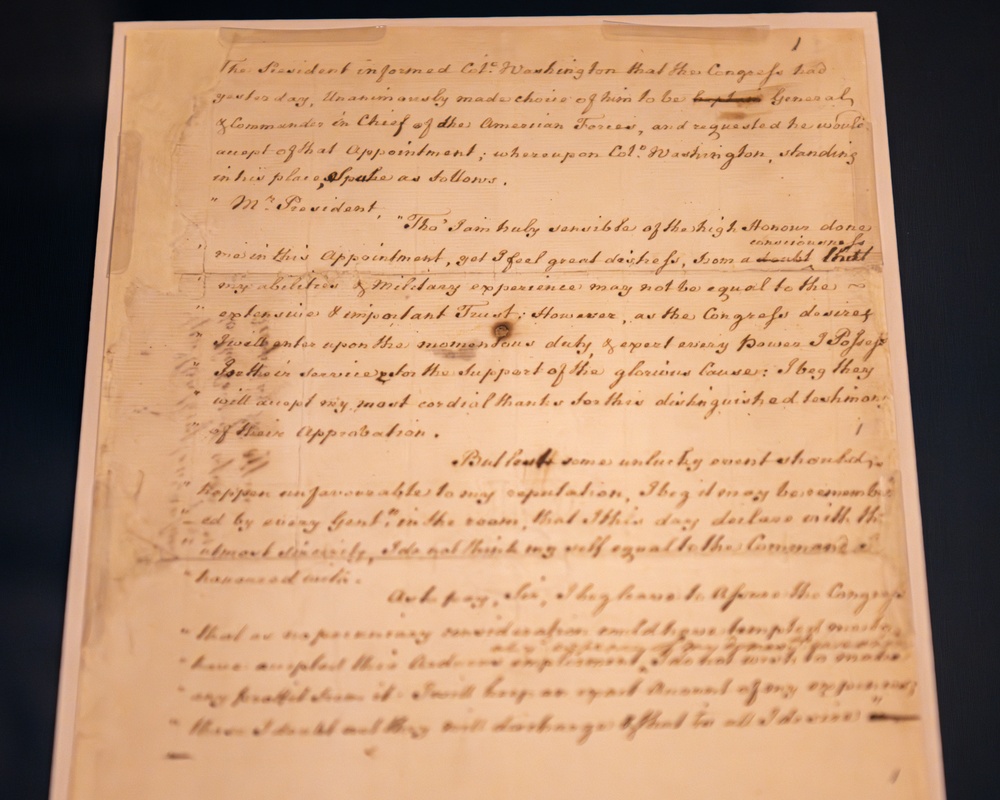 1
The President informed Colo. Washington that the Congress had
yesterday, Unanimously made choice of him to be General
& Commander in Chief of the American Forces, and requested he would
accept of that Appointment; whereupon Colo. Washington, standing
in his place, Spake as follows.
" Mr. President,
"Tho' I am truly sensible of the high Honour done
consciousness
" me in this Appointment, yet I feel great distress, from a doubt that
my abilities & Military experience may not be equal to the ~
" extensive & important Trust: However, as the Congress desires
" I will enter upon the momentous duty, & exert every power I Possess
" In their service & for the Support of the glorious Cause: I beg they
" will accept my most cordial thanks for this distinguished testimony
" of their Approbation.
1
But lest some unlucky event should
" happen unfavourable to my reputation, I beg it may be remember
"–ed by every Gentn. in the room, that I this day declare with the
" utmost sincerity, I do not think my self equal to the Command I
" honoured with.
As to pay, Sir, I beg leave to Assure the Congress
" that as no pecuniary consideration could have tempted me to
at the expence of my domestic
" have accepted this Arduous employment, I do not wish to make
" any proffit from it: I will keep an exact Account of my expences;
" those I doubt not they will discharge & that is all I desire"
1